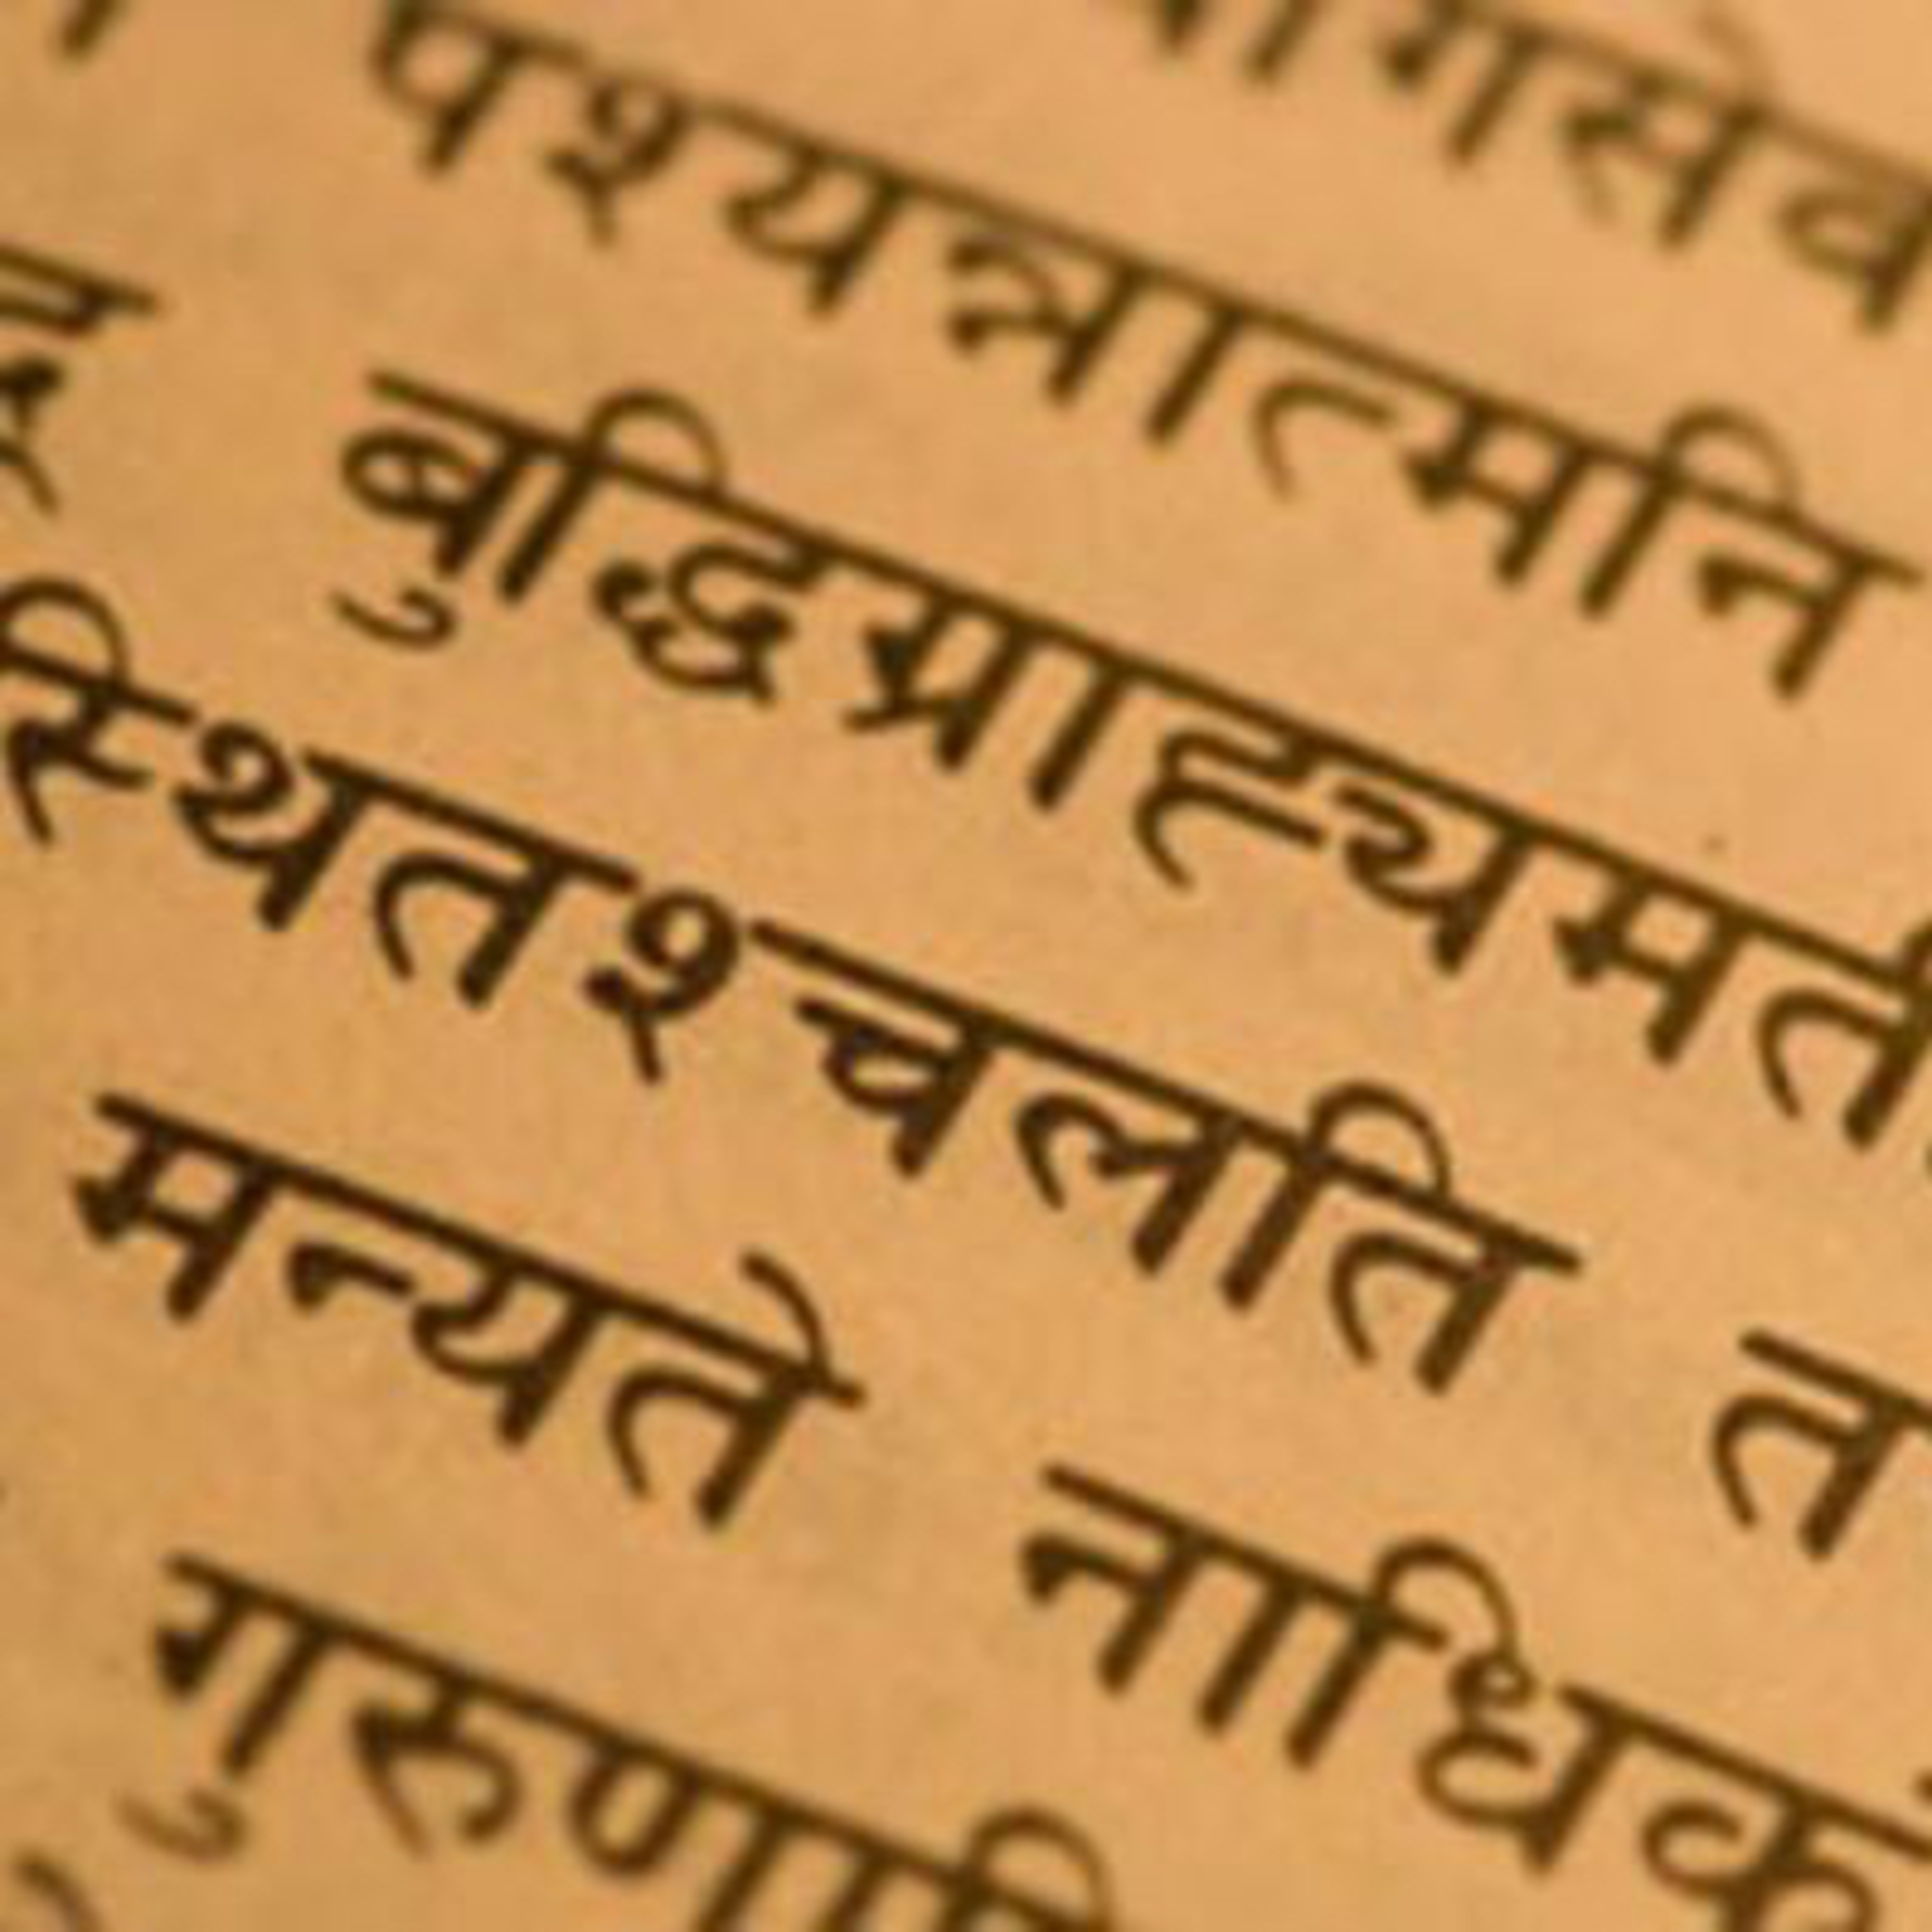 पश्यन्नात्मनि
बुद्धिग्राह्यमती
स्थितश्चलति त
मन्यते नाधिकं
गुरुणापि